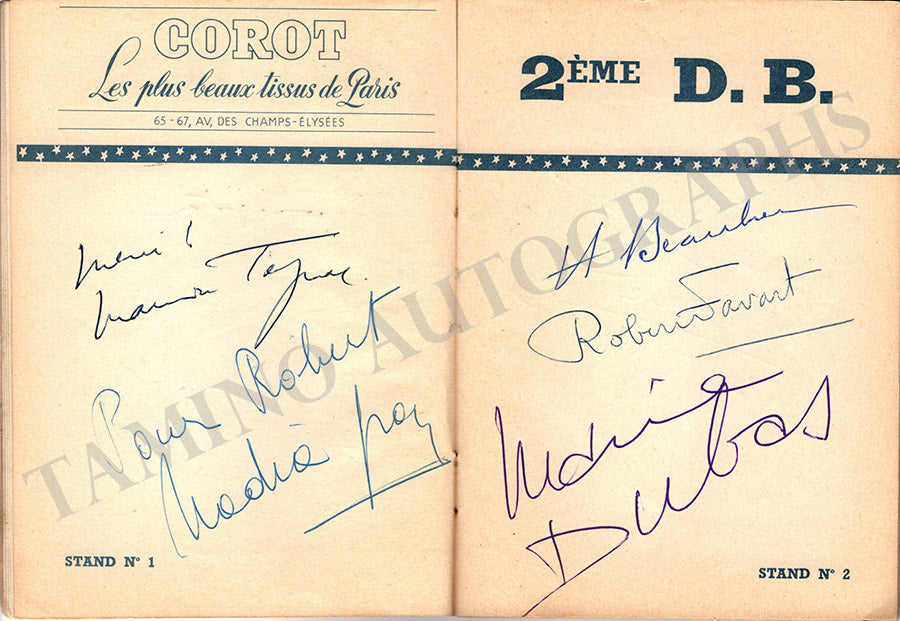 COROT
Les plus beaux tissus de Paris
65-67, AV, DES CHAMPS-ÉLYSÉES
Merci!
Pour Robert
Nadia Gray
STAND N° 1
2ÈME D. B.
Robert Favart
Marie
Dubas
STAND N° 2
TAMINO AUTOGRAPHS